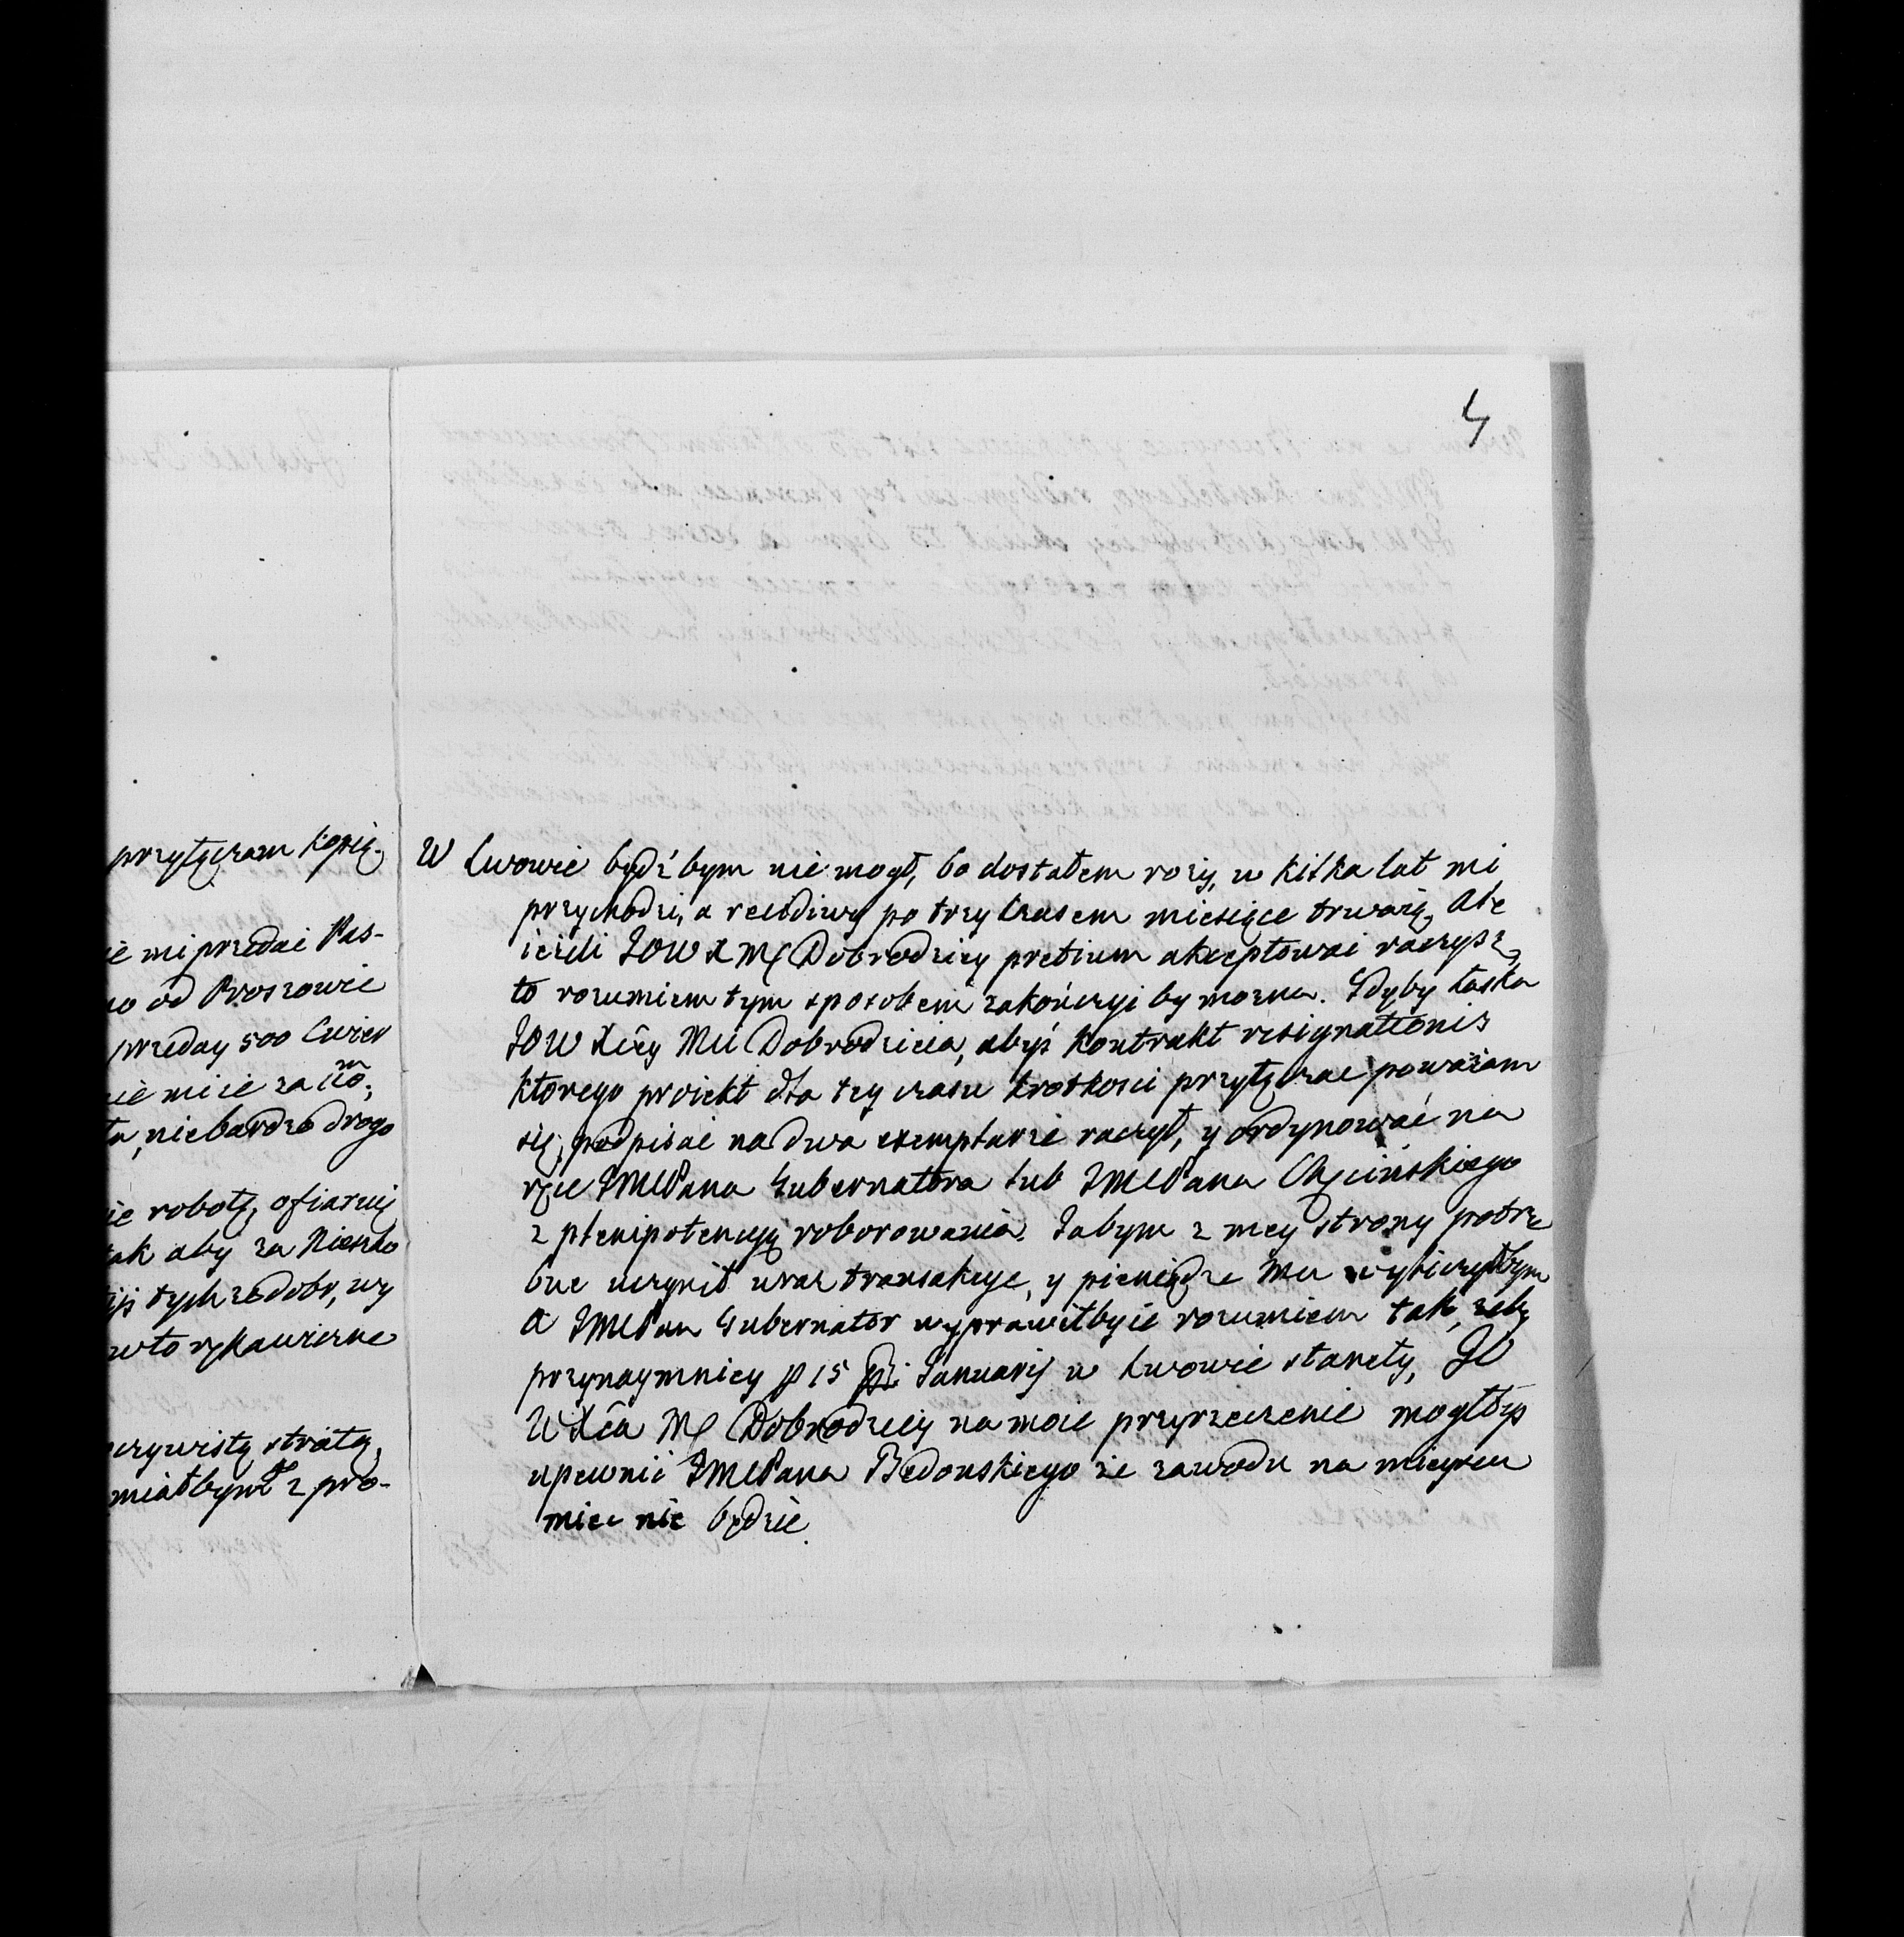 4
przyłączam kopią.
mi przedać Pas-
od Proszowic
przeday 500 Cwier
niebardzo drogo
robotę, ofiaruię
tak aby za Niesko
tych że dobr, wy
oczywistą stratę,
miałbym z pro-
W Lwowie bydź bym nie mogł, bo dostałem roży, w kilka lat mi
przychodzi, a recidiwy po trzy czasem miesiące trwaią. Ale
ieżeli JOWXMć Dobrodziey pretium akceptować raczysz,
to rozumiem tym sposobem zakończyć by można. Gdyby łaska
JOWXćey Mci Dobrodzieia, abyś kontrakt resignationis
ktorego proiekt dla tey czasu krotkosci przyłączać poważam
się, podpisać na dwa exemplarze raczył, y ordynować na
ręce JMCPana Gubernatora lub JMCPana
z plenipotencyą roborowania. Jabym z mey strony potrze
bne uczynił wraz transakcye, y pieniądze Mu wyliczyłbym
A JMCPan Gubernator wyprawiłby ie rozumiem tak, żeby
przynaymniey p 15 Januarij w Lwowie stanęły, JO
WXća Mć Dobrodziey na moie przyrzeczenie mogłbyś
upewnić JMCPana Bedonskiego że zawodu na mieyscu
mieć nie będzie.